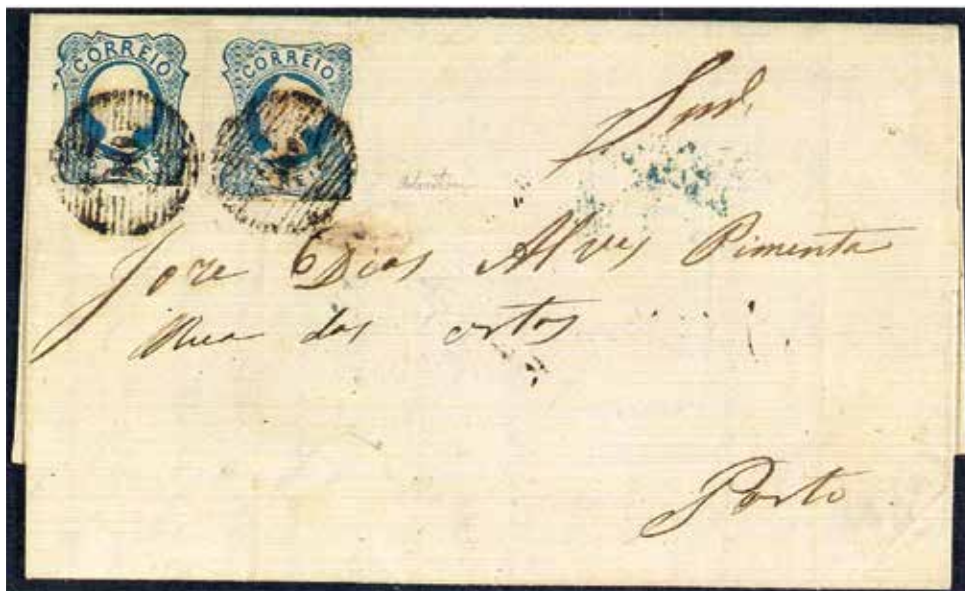 CORREIO CORREIO
Jose Dias Alves Pimenta
Rua das ortas
Porto